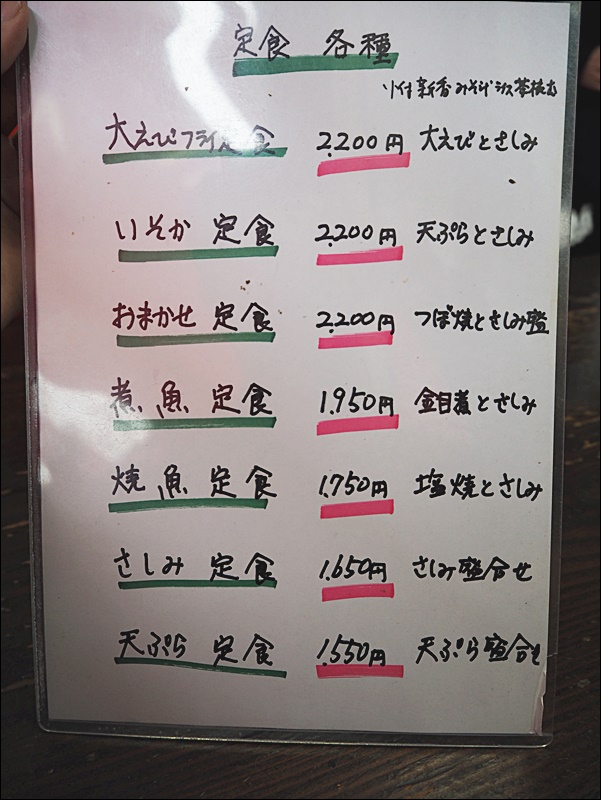 定食 各種
小付 新香 みそ汁
大えびフライ定食 2.200円 大えびとさしみ
いそか 定食 2.200円 天ぷらとさしみ
おまかせ 定食 2.200円 つぼ焼とさしみ盛
煮魚 定食 1.950円 金目煮とさしみ
焼魚 定食 1.750円 塩焼とさしみ
さしみ 定食 1.650円 さしみ盛合せ
天ぷら 定食 1.550円 天ぷら盛合せ